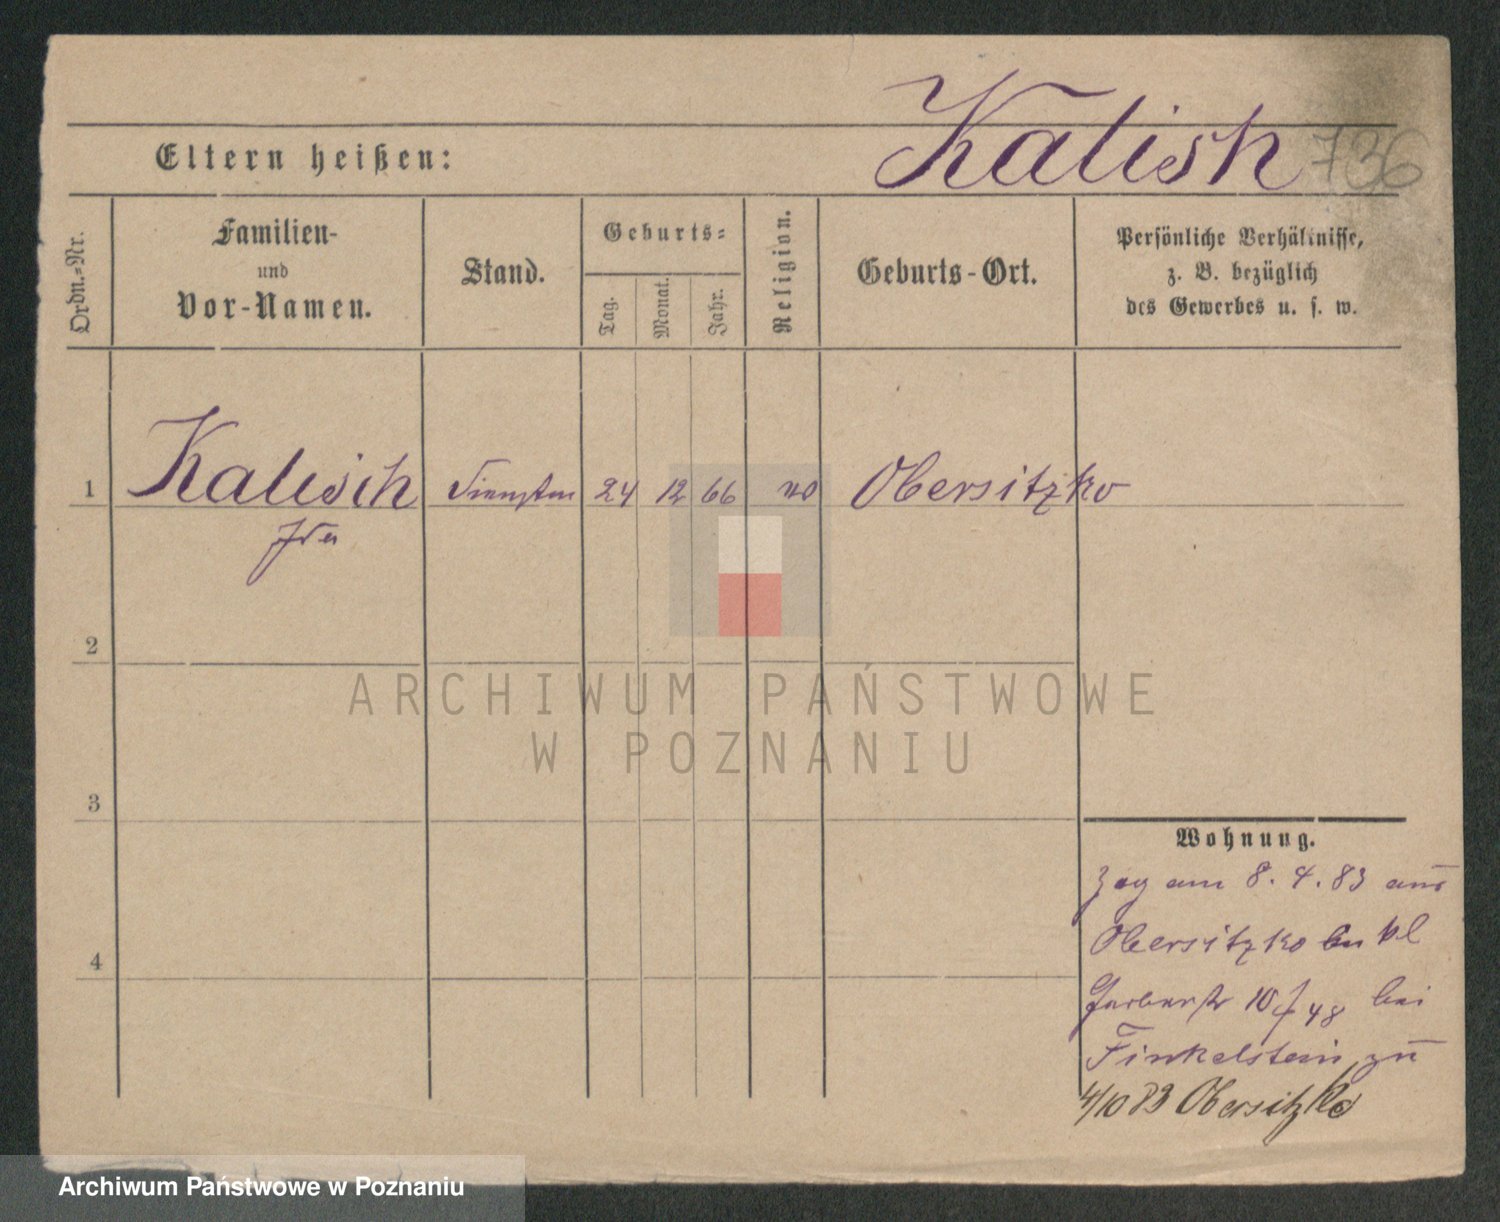 Kalish 736
Eltern heißen:
Ordn.=Nr.
Familien-
und
Vor-Namen.
Stand.
Geburts=
Tag.
Monat.
Jahr.
Religion.
Geburts-Ort.
Persönliche Verhältnisse,
z. B. bezüglich
des Gewerbes u. s. w.
1 Kalisch 24 12 66 Obersitzko
2
ARCHIWUM PAŃSTWOWE
W POZNANIU
3
Wohnung.
Zog am 8. 4. 83 aus
Obersitzko kl
4
Gerberstr 10 48 bei
Finkelstein zu
4/10 83 Obersitzko
Archiwum Państwowe w Poznaniu